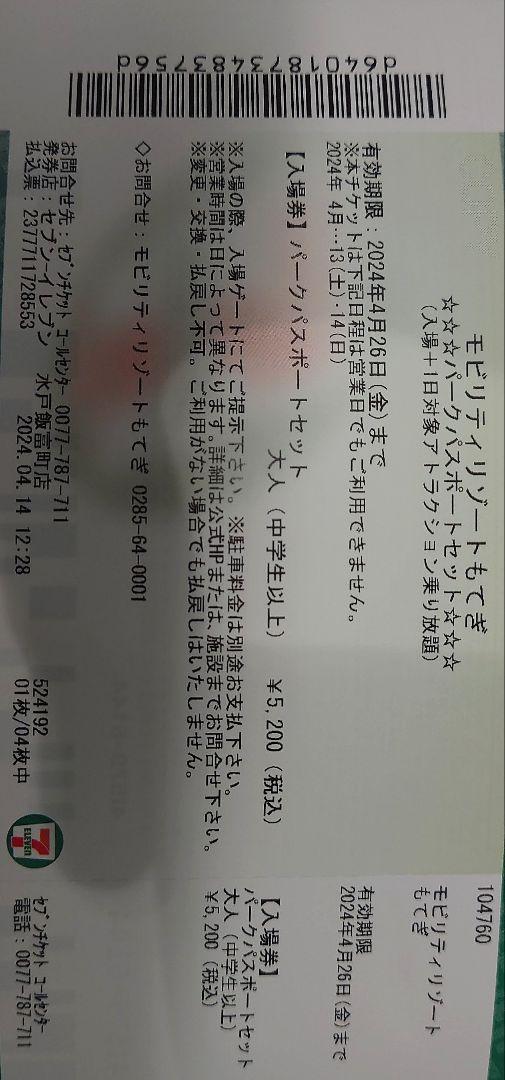 d64018734833756d
モビリティリゾートもてぎ
☆☆☆パークパスポートセット☆☆☆
(入場+1日対象アトラクション乗り放題)
有効期限：2024年4月26日(金)まで
※本チケットは下記日程は営業日でもご利用できません。
2024年 4月…13(土)・14(日)
【入場券】パークパスポートセット
大人（中学生以上） ￥5,200（税込）
※入場の際、入場ゲートにてご提示下さい。※駐車料金は別途お支払下さい。
※営業時間は日によって異なります。詳細は公式HPまたは、施設までお問合せ下さい。
※変更・交換・払戻し不可。ご利用がない場合でも払戻しはいたしません。
◇お問合せ：モビリティリゾートもてぎ 0285-64-0001
お問合せ先：セブンチケット コールセンター 0077-787-711
発券店：セブン-イレブン 水戸飯富町店 524192
払込票：2377711728553 2024.04.14 12:28 01枚/04枚中
7
ELEVEN
104760
モビリティリゾート
もてぎ
有効期限
2024年4月26日(金)まで
【入場券】
パークパスポートセット
大人（中学生以上）
￥5,200（税込）
セブンチケット コールセンター
電話：0077-787-711